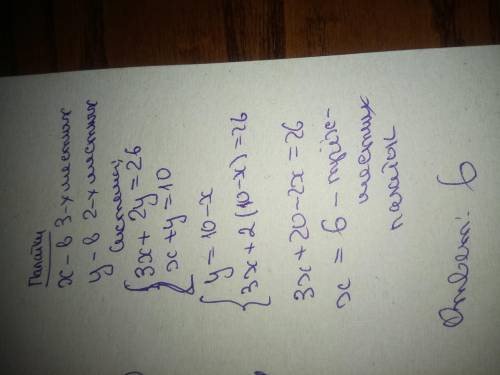 Палатки
x - в 3-х местных
y - в 2-х местных
Система:
{ 3x + 2y = 26
x + y = 10
{ y = 10 - x
3x + 2(10-x) = 26
3x + 20 - 2x = 26
x = 6 - трёх-
местных
палаток
Ответ: 6